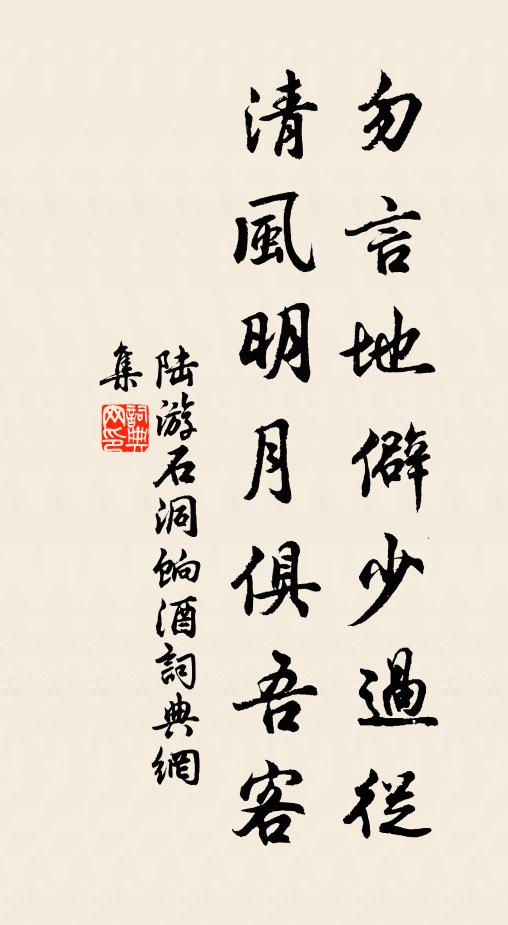 勿言地僻少過從
清風明月俱吾客
陸游石洞餉酒詞典網
集
詞典
网印